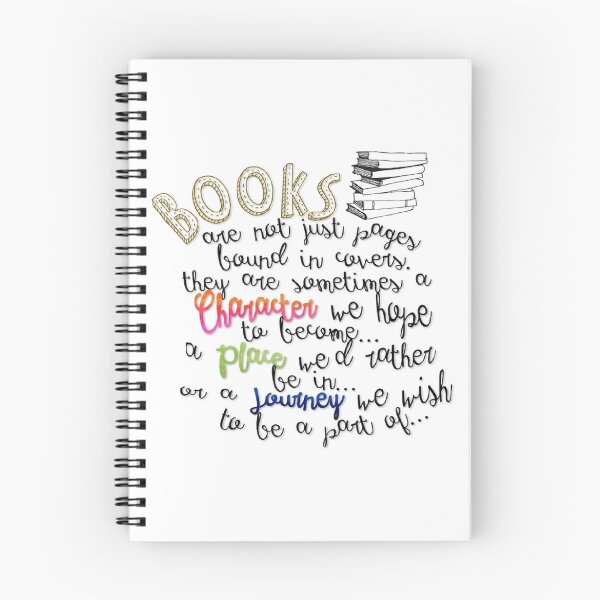 BOOKS
are not just pages
bound in covers.
they are sometimes a
Character we hope
to become...
a Place we'd rather
be in...
or a Journey we wish
to be a part of...